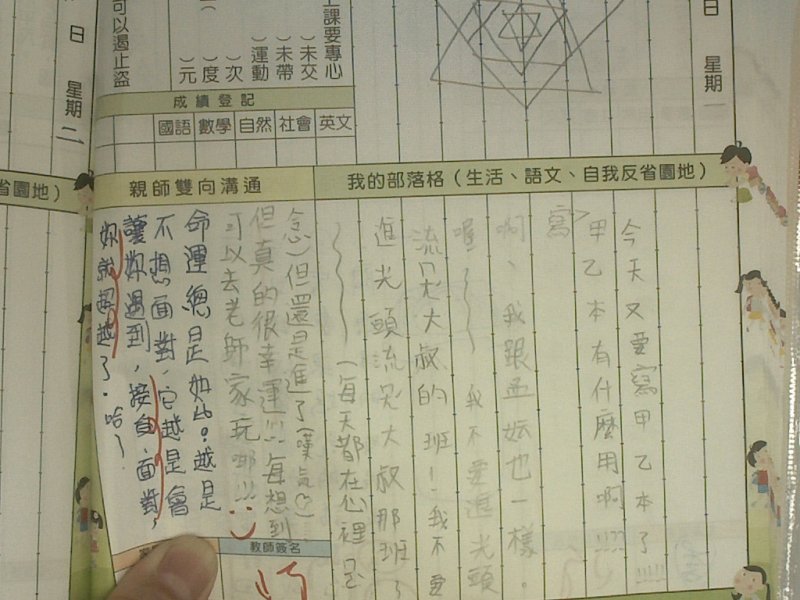 日
星期一
上課要專心
）未交
）未帶
）運動
）次
）度
）元
可以遏止盜
成績登記
國語 數學 自然 社會 英文
日
星期二
省園地）
我的部落格（生活、語文、自我反省園地）
今天又要寫甲乙本了!!!!!
寫甲乙本有什麼用啊!!!??
啊、我跟孟妘也一樣。
喔～～～我不要進光頭
流氓大叔的班！我不要
進光頭流氓大叔那班了
～～～（每天都在心裡
念）但還是進了（嘆氣
但真的很幸運!!!每想到
可以去老師家玩耶!!! :)
親師雙向溝通
命運總是如此。越是
不想面對，它越是會
讓妳遇到，接負、面對，
妳就超越了。哈～
教師簽名